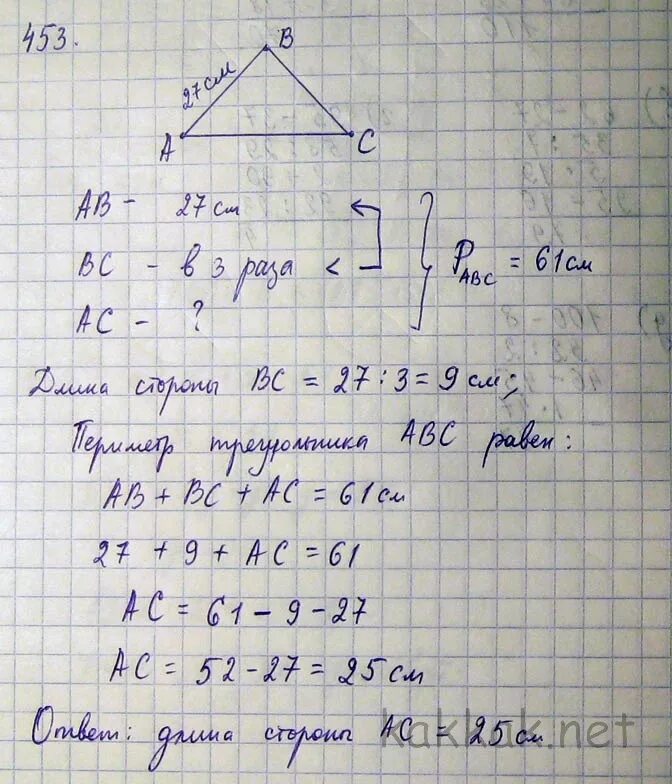 453.
B
27 см
A
C
AB - 27 см
BC - в 3 раза <
P ABC = 61 см
AC - ?
Длина стороны BC = 27 : 3 = 9 см;
Периметр треугольника ABC равен:
AB + BC + AC = 61 см
27 + 9 + AC = 61
AC = 61 - 9 - 27
AC = 52 - 27 = 25 см
Ответ: длина стороны AC = 25 см
kakkak.net